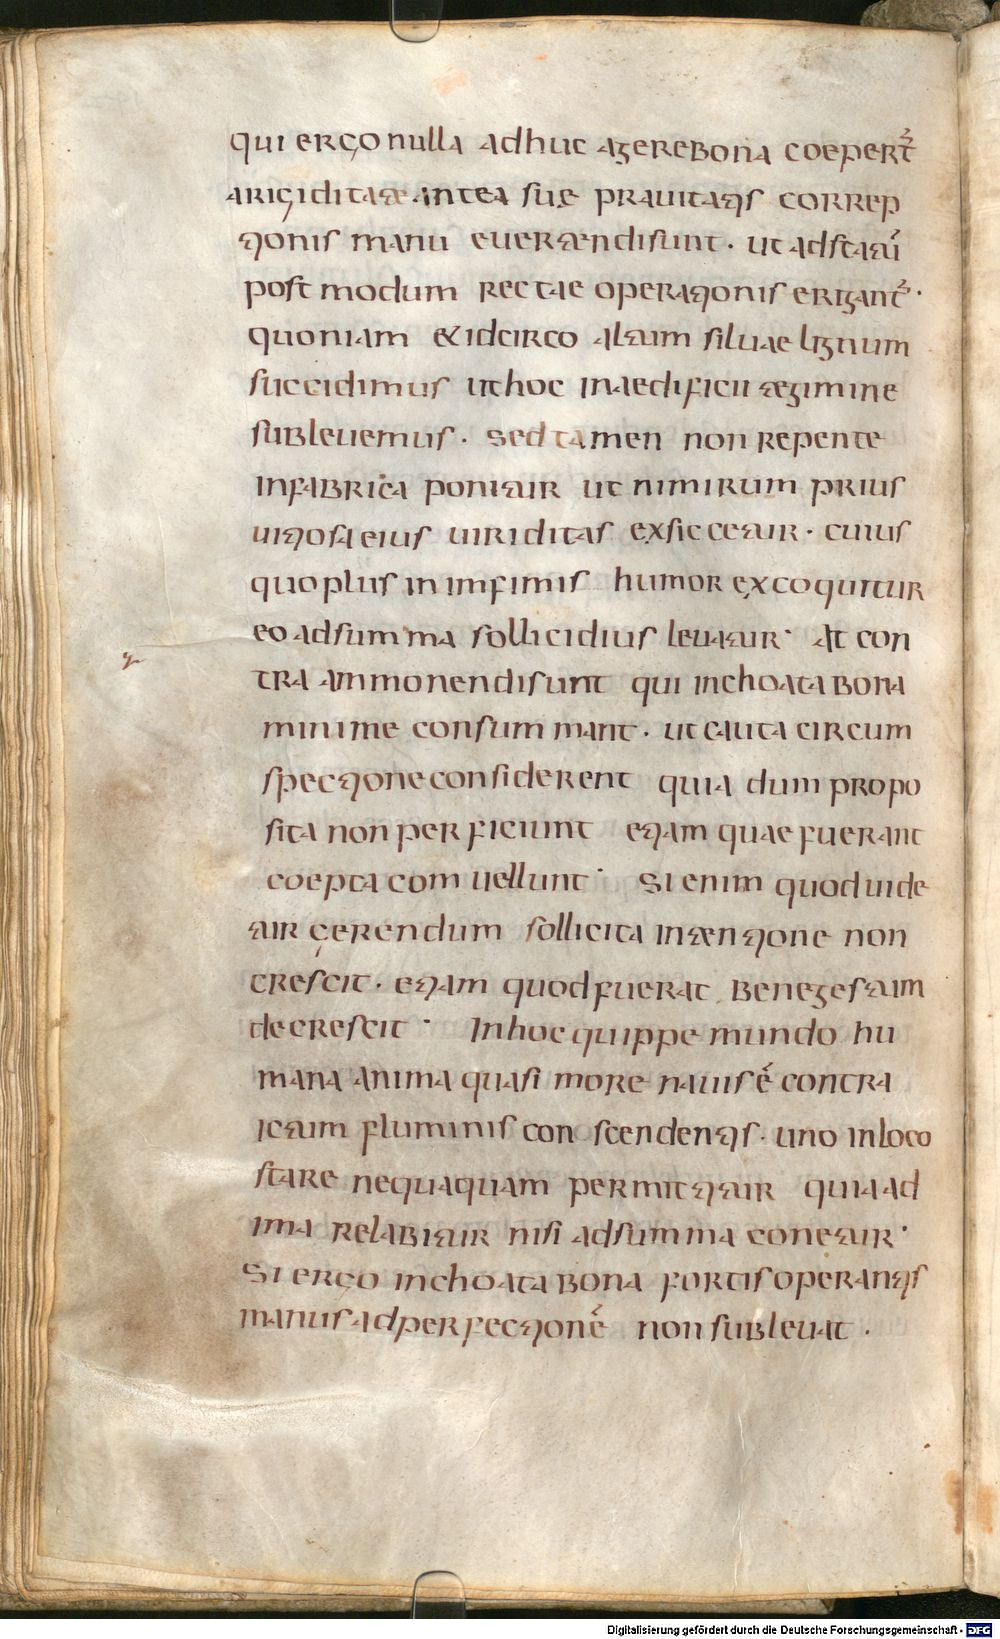 qui ergo nulla adhuc agere bona coeper̃t
a rigiditatae antea suę prauitatis correp
tionis manu euertaendi sunt · ut ad statũ
post modum rectae operationis erigant̃ ·
quoniam & idcirco altum siluae lignum
succidimus ut hoc in aedificii taegimine
subleuemus · sed tamen non repente
in fabrica ponitur ut nimirum prius
uitiosa eius uiriditas exsiccetur · cuius
quo plus in imfimis humor excoquitur
eo ad summa sollicidius leuatur · At con
tra ammonendi sunt qui inchoata bona
minime consummant · ut cauta circum
spectione considerent quia dum propo
sita non perficiunt etiam quae fuerant
coepta comuellunt · Si enim quod uide
tur gerendum sollicita intaentione non
crescit · etiam quod fuerat bene gestum
decrescit · In hoc quippe mundo hu
mana anima quasi more nauis ẽ contra
ictum fluminis conscendentis · uno in loco
stare nequaquam permittitur quia ad
ima relabitur nisi ad summa conetur ·
Si ergo inchoata bona fortis operantis
manus ad perfectionẽ non subleuat ·
Digitalisierung gefördert durch die Deutsche Forschungsgemeinschaft - DFG